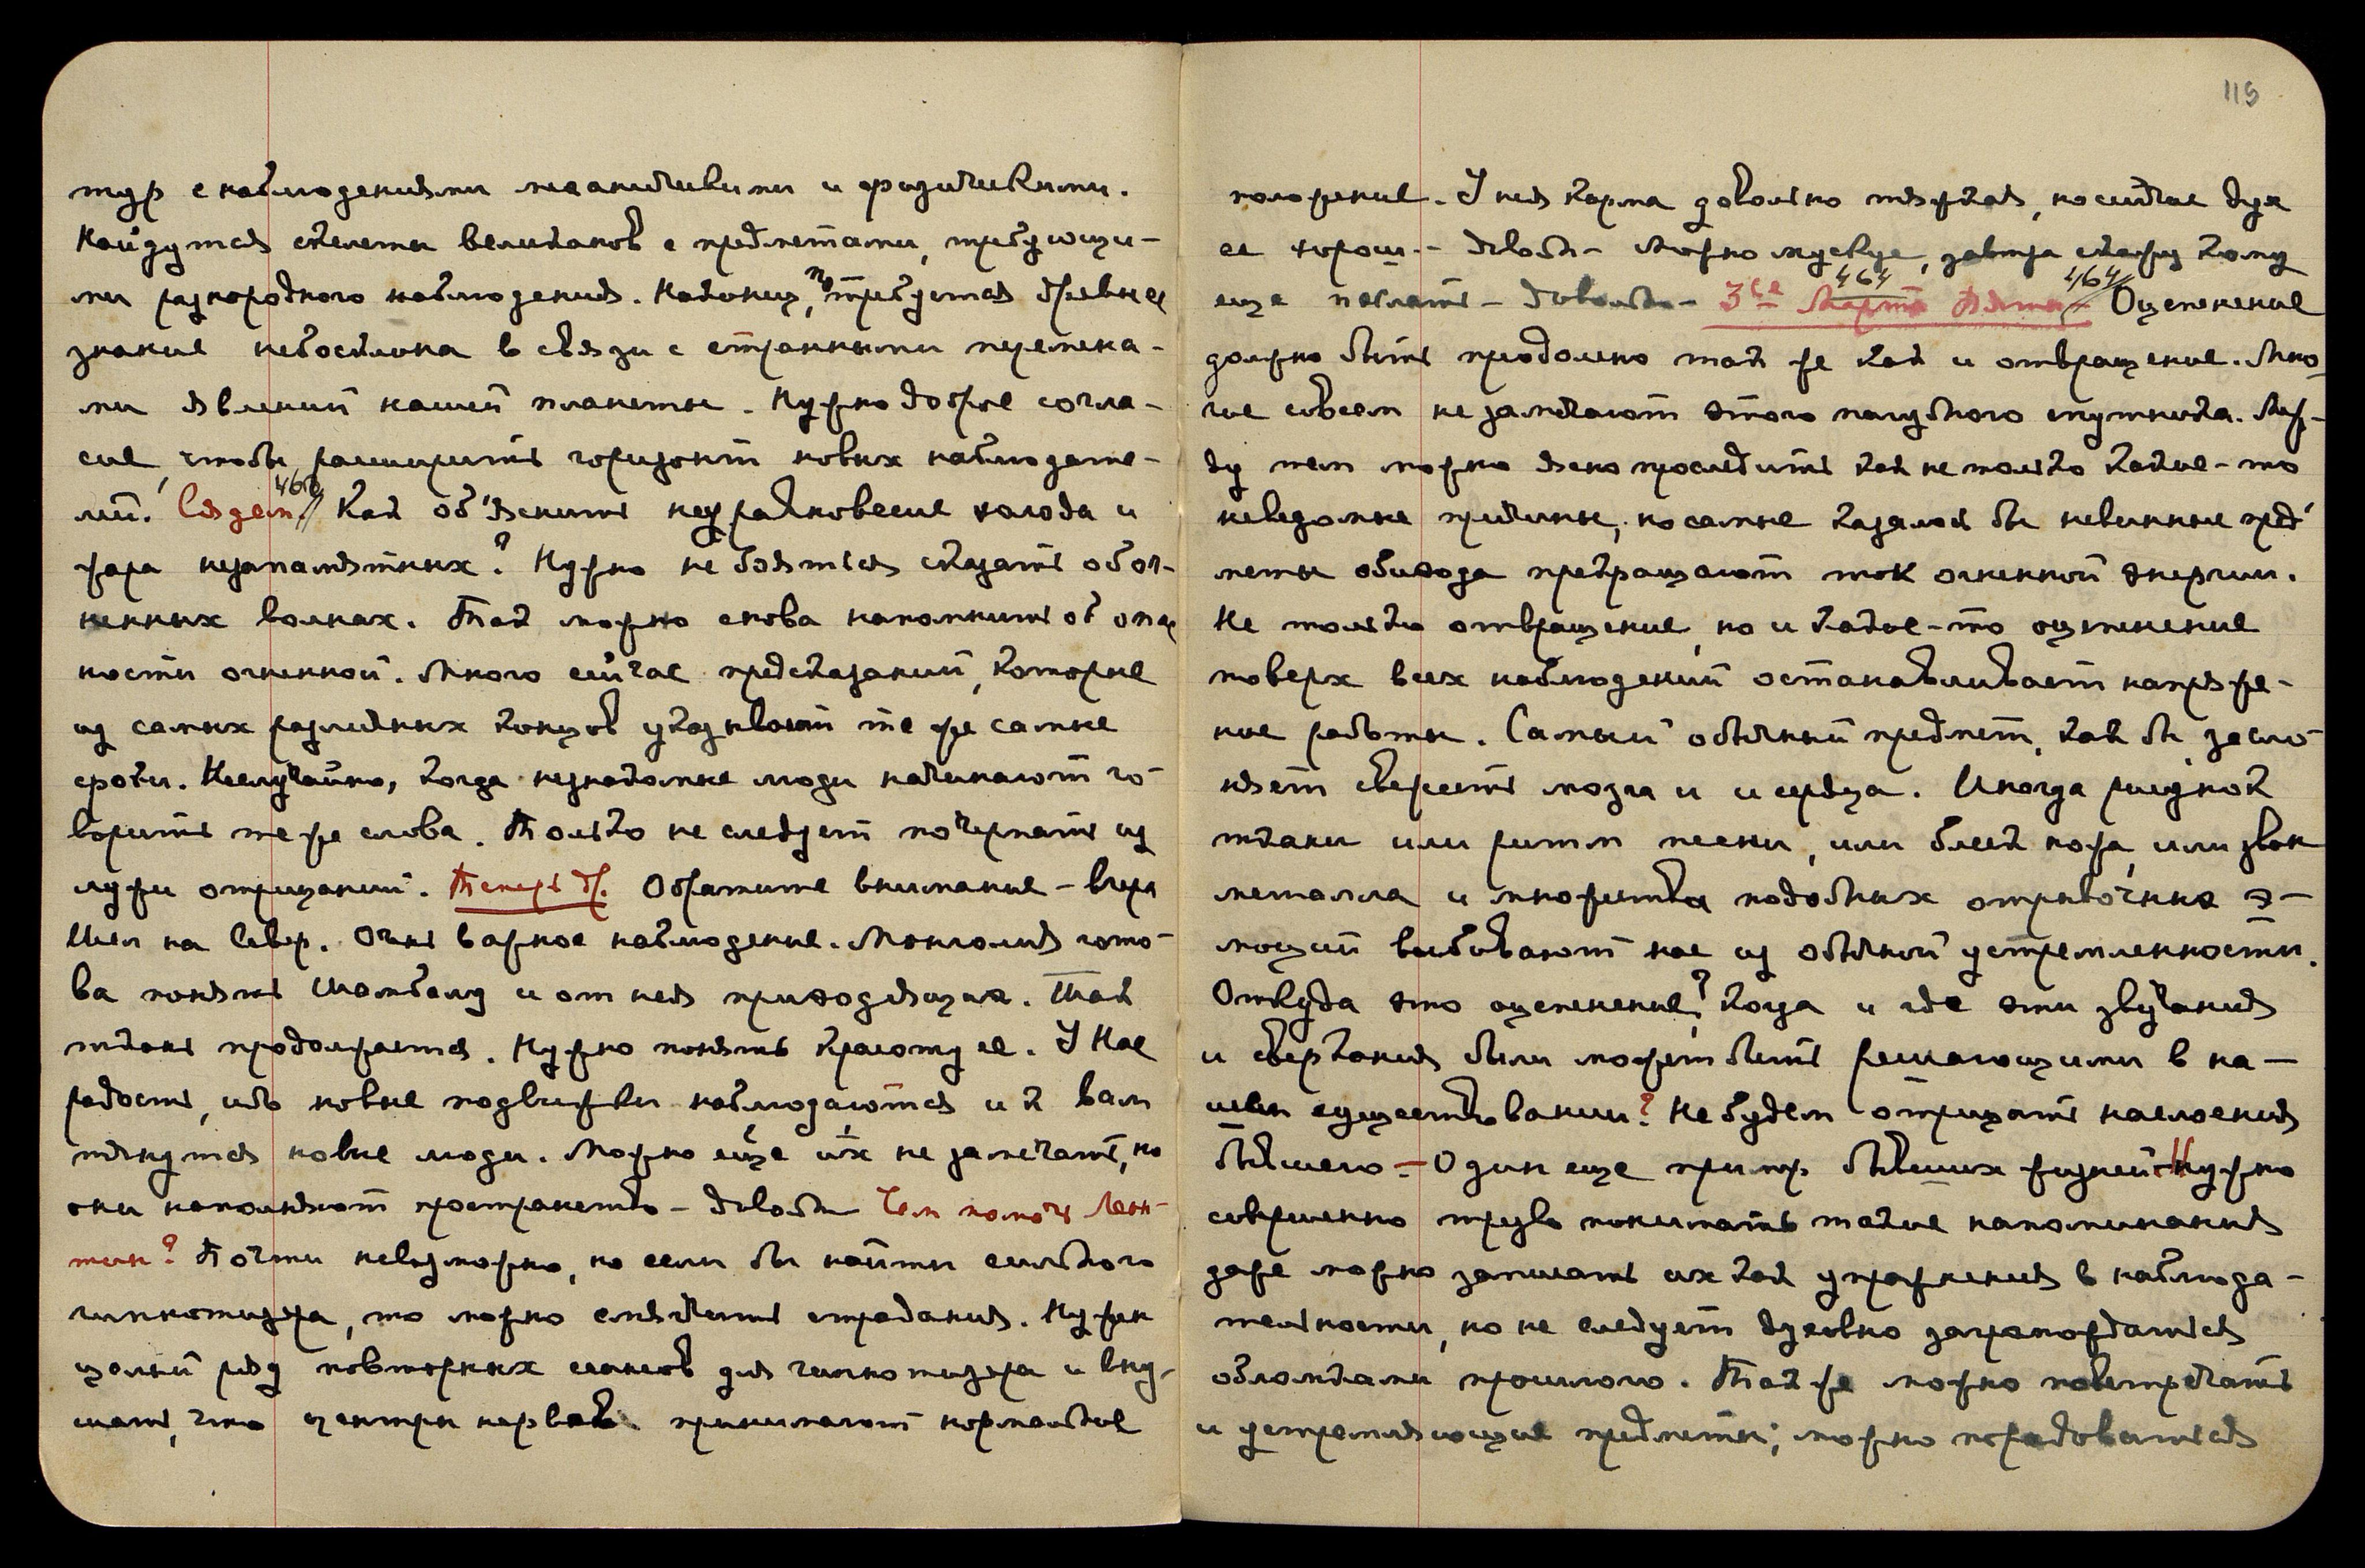 тур с наблюдениями механическими и физическими.
Найдутся скелеты великанов с предметами, требующи-
ми разнородного наблюдения. Наконец, потребуется древнее
знание небосклона в связи с странными переме́на-
ми явлений нашей планеты. Нужно доброе согла-
сие, чтобы расширить горизонт новых наблюдате-
лей. Сядем. // Как об'яснить неуравновесие холода и
жара незапамятных? Нужно не бояться сказать об ог-
ненных волнах. Так можно снова напомнить об опас
ности огненной. Много сейчас предсказаний, которые
из самых различных концов указывают те же самые
сроки. Неслучайно, когда незнакомые люди начинают го-
ворить те же слова. Только не следует почерпать из
лужи отрицаний. Теперь др. Обратите внимание – вчера
Шел на Север. Очень важное наблюдение. Монголия гото-
ва понять Шамбалу и от нея приходящих. Так
ткань продолжается. Нужно понять красоту ее. У Нас
радость, ибо новые подвижки наблюдаются и к вам
тянутся новые люди. Можно еще их не замечать, но
они наполняют пространство – довольно Чем помочь Леон-
тин? Почти невозможно, но если бы найти сильного
гипнотизера, то можно смягчить страдания. Нужен
целый ряд повторных сеансов для гипнотизера и вну-
шать, что центры нервов принимают нормальное
115
положение. У нея карма довольно тяжкая, но сейчас дух
ее хорош. – довольно – Можно мускус, завтра скажу кому
еще послать – довольно – 3-е Марта 464 464 // Оцепенение
должно быть преодолено так же как и отвращение. Мно-
гие совсем не замечают этого пагубного спутника. Меж-
ду тем можно ясно проследить как не только какие-то
неведомые причины, но самые казалось бы невинные пред
меты обихода прекращают ток огненной энергии.
Не только отвращение, но и какое-то оцепенение
поверх всех наблюдений останавливает напряже-
ние работы. Самый обычный предмет, как бы засло-
няет свежесть мозга и и сердца. Иногда рисунок
ткани или ритм песни, или блеск ножа, или звон
металла и множества подобных отрывочных э-
моций выбивают нас из обычной устремленности.
Откуда это оцепенение? Когда и где эти звучания
и сверкания были может быть решающими в на-
шем существовании? Не будем отрицать наслоения
бывшего – Один еще пример бывших жизней Нужно
совершенно трезво понимать такие напоминания
даже можно записать их как упражнения в наблюда-
тельности, но не следует духовно загромождаться
обломками прошлого. Так же можно повстречать
и устремляющие предметы; можно порадоваться